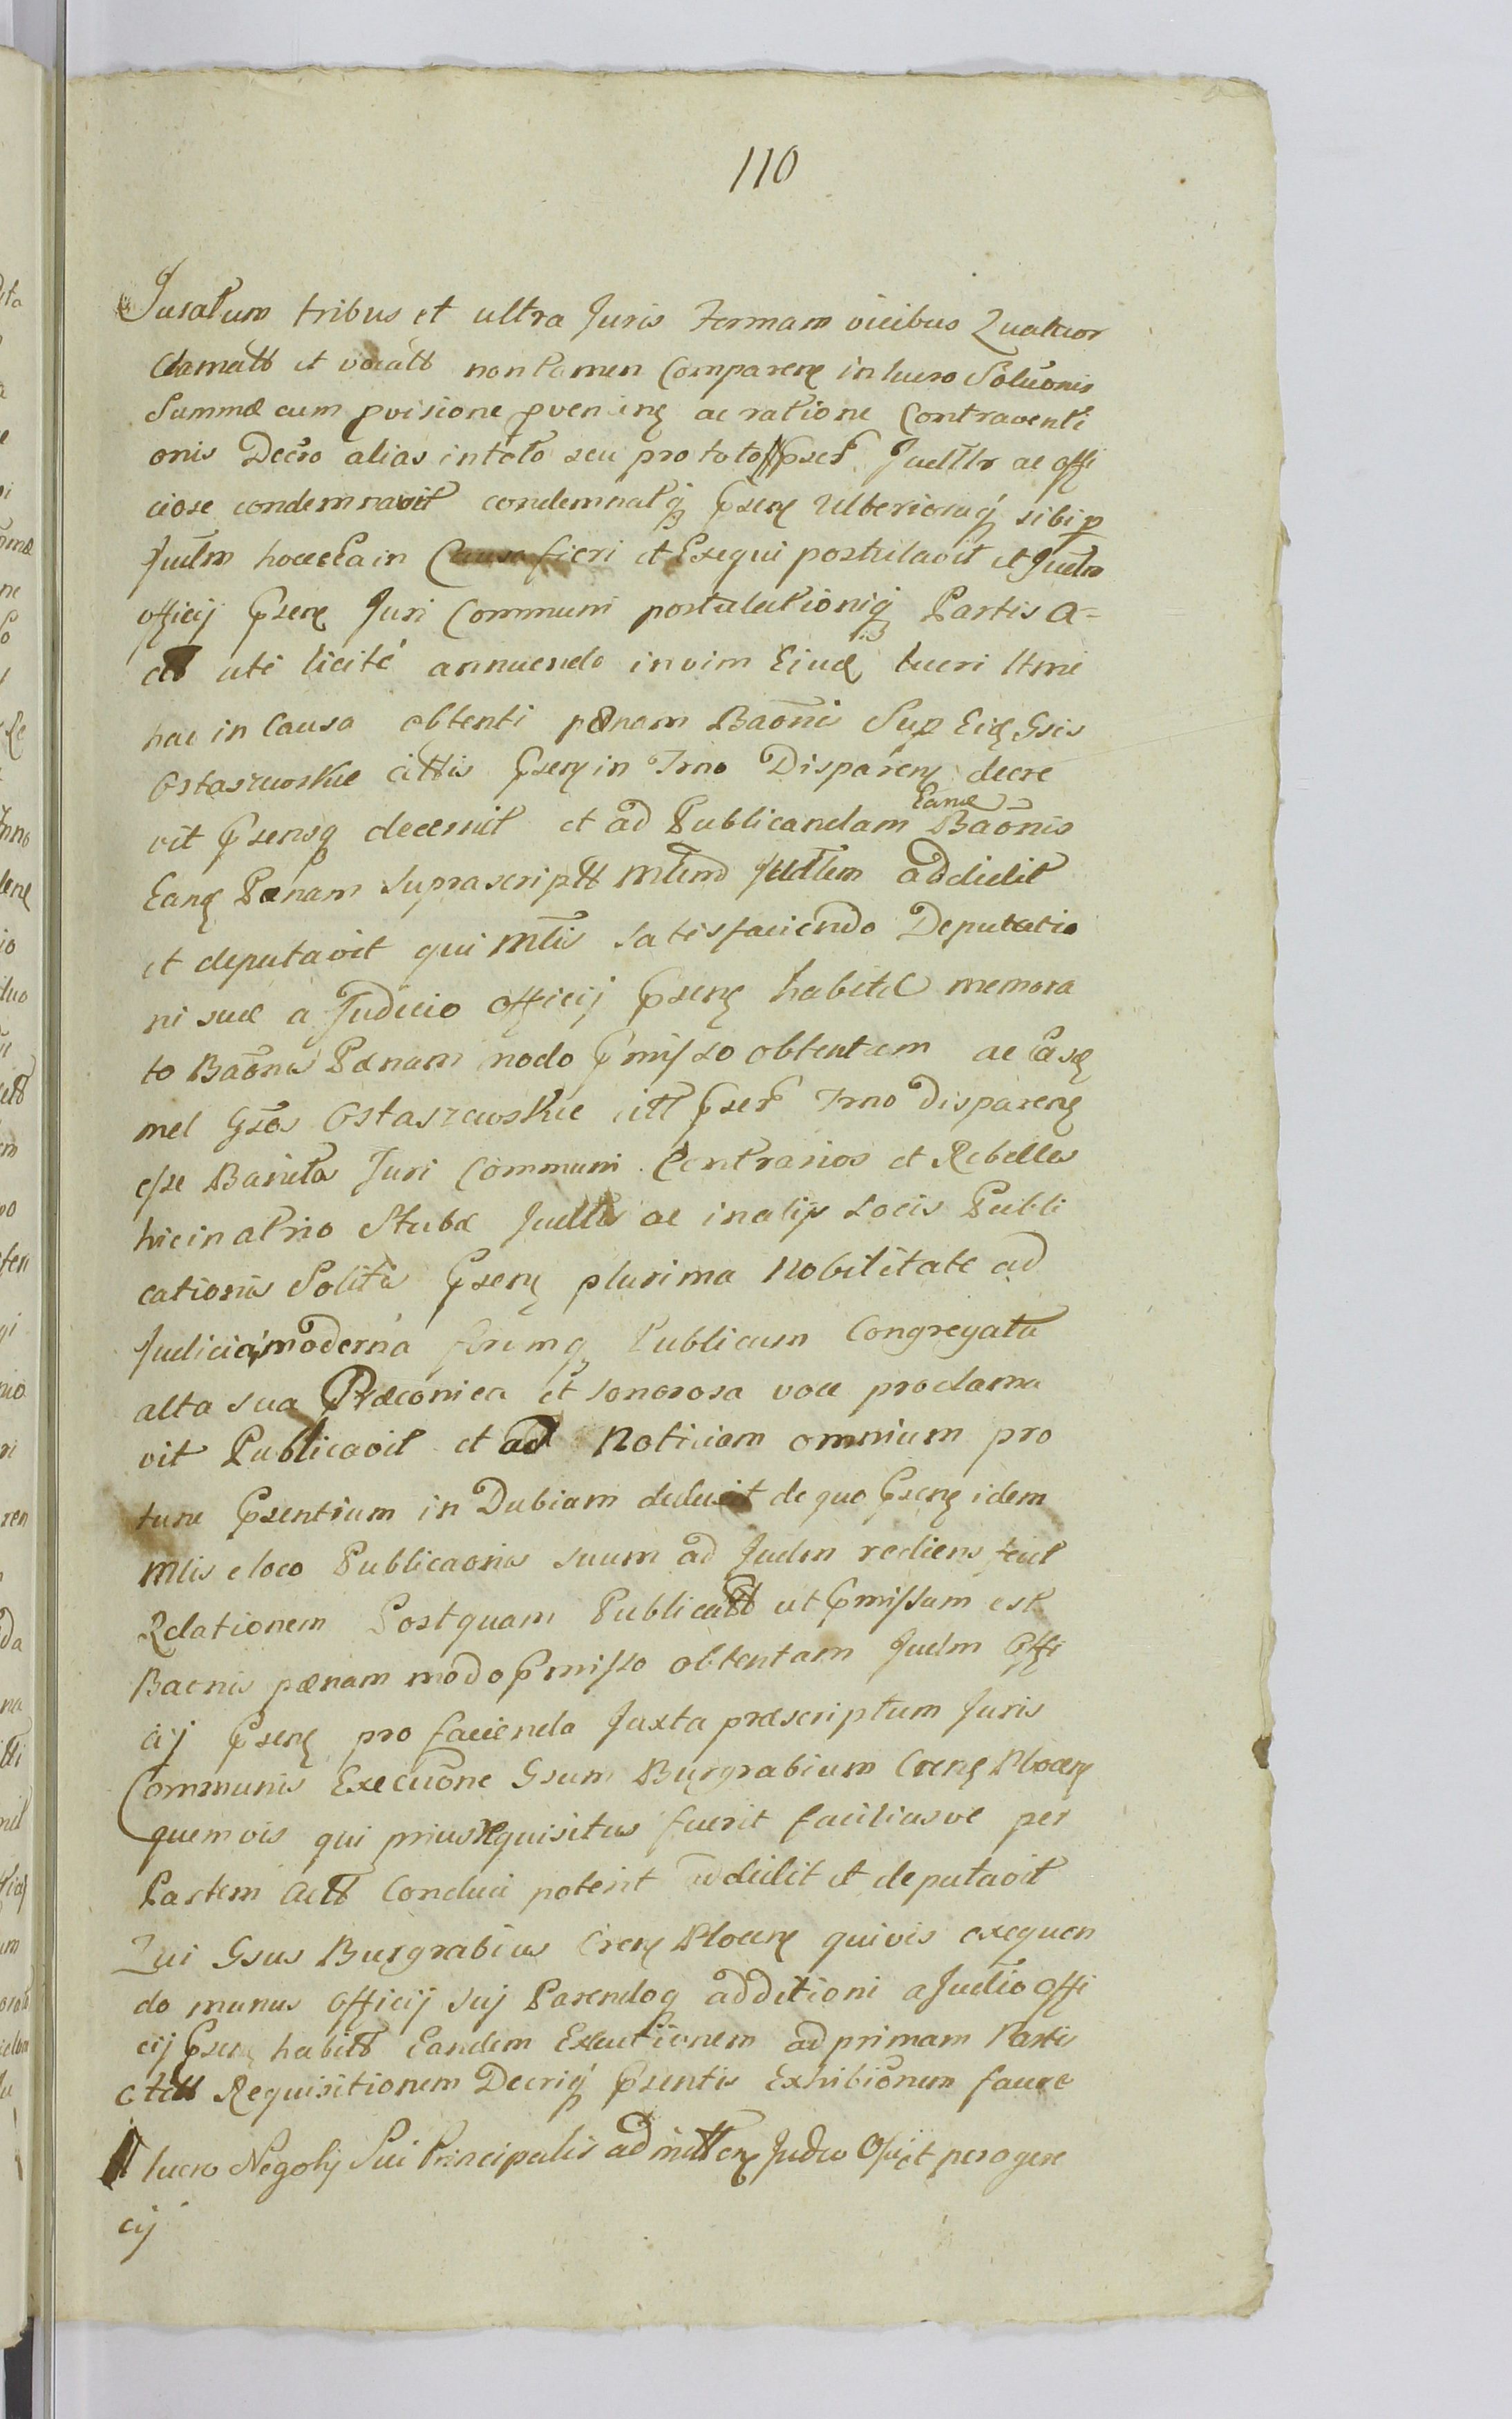 110
Juratum tribus et ultra Juris Formam vicibus Quatuor
Clamatt et vocatt non tamen Comparenę in lucro Solu̅onis
Summæ cum pvisione pvenienę ac ratione Contraventi
onis Decro alias in toto seu pro toto pser Juttlr ac offi
ciose condemnavit condemnatq Psenę Ulterioruq sibi p
Judm hocce Ea in Causa fieri et Exequi postulavit et Judm
officij Psenę Juri Communi postulationiq Partis A=
ctt uti licitè annuendo in vim Eiuđ lucri Itrni
hac in Causa obtenti pænam Bao̅nis Sup Eisđ Gsis
Ostaszewskie cittis Psenę in Trno Disparenę decre
vit Psensq decernit et ad Publicandam Eanđ Bao̅nis
Eanđ Pænam suprascriptt Mlem Judlem addidit
et deputavit qui Mlis satisfaciendo Deputatio
ni suæ a Judicio officij Psenę habitæ memora
to Bao̅nis Pænam modo Pmisso obtentam ac Easđ
mel Gsos Ostaszewskie citt Pser Trno disparenę
esse Banitos Juri Communi Contrarios et Rebelles
hic in atrio Stubæ Judlis ac in alijs Locis Publi
cationis Solitis Psenę plurima Nobilitate ad
Judicia moderna forumq Publicum Congregata
alta sua Præconica et sonorosa voce proclama
vit Publicavit et ad Noticiam omnium pro
tunc Psentium in Dubiam deduxit de quo Psenę idem
Mlis e loco Publicaonis suum ad Judm rediens fecit
Relationem Postquam Publicatt ut Pmissum est
Baonis pænam modo Pmisso obtentam Judm Offi
cij Psenę pro facienda Juxta præscriptum Juris
Communis Execuo̅ne Gsum Burgrabium Crenę Plocenę
quemvis qui prius requisitus fuerit faciliusve per
Partem Actt Conduci poterit addidit et deputavit
Qui Gsus Burgrabius Crenę Plocenę quivis exequen
do munus officij sui Parendoq additioni a Judio Offi
cij Psenę habitt Eandem Executionem ad primam Partis
Actt Requisitionem Decriq Psentis Exhibio̅nem facere
lucro Negotij Sui Principalis admittenę Judio Offi et peragere
cij